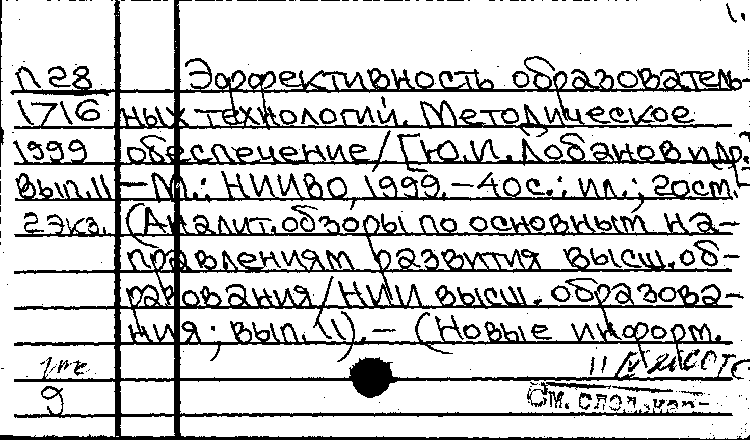 1.
П28 Эффективность образователь-
1716 ных технологий. Методическое
1999 обеспечение/[Ю.И.Лобанов и др.]
Вып.11 – М.: НИИВО, 1999. – 40с.: ил.; 20см. –
2 экз. (Аналит. обзоры по основным на-
правлениям развития высш. об-
разования/НИИ высш. образова-
ния; вып. 11). – (Новые информ.
9 См. след. кар-